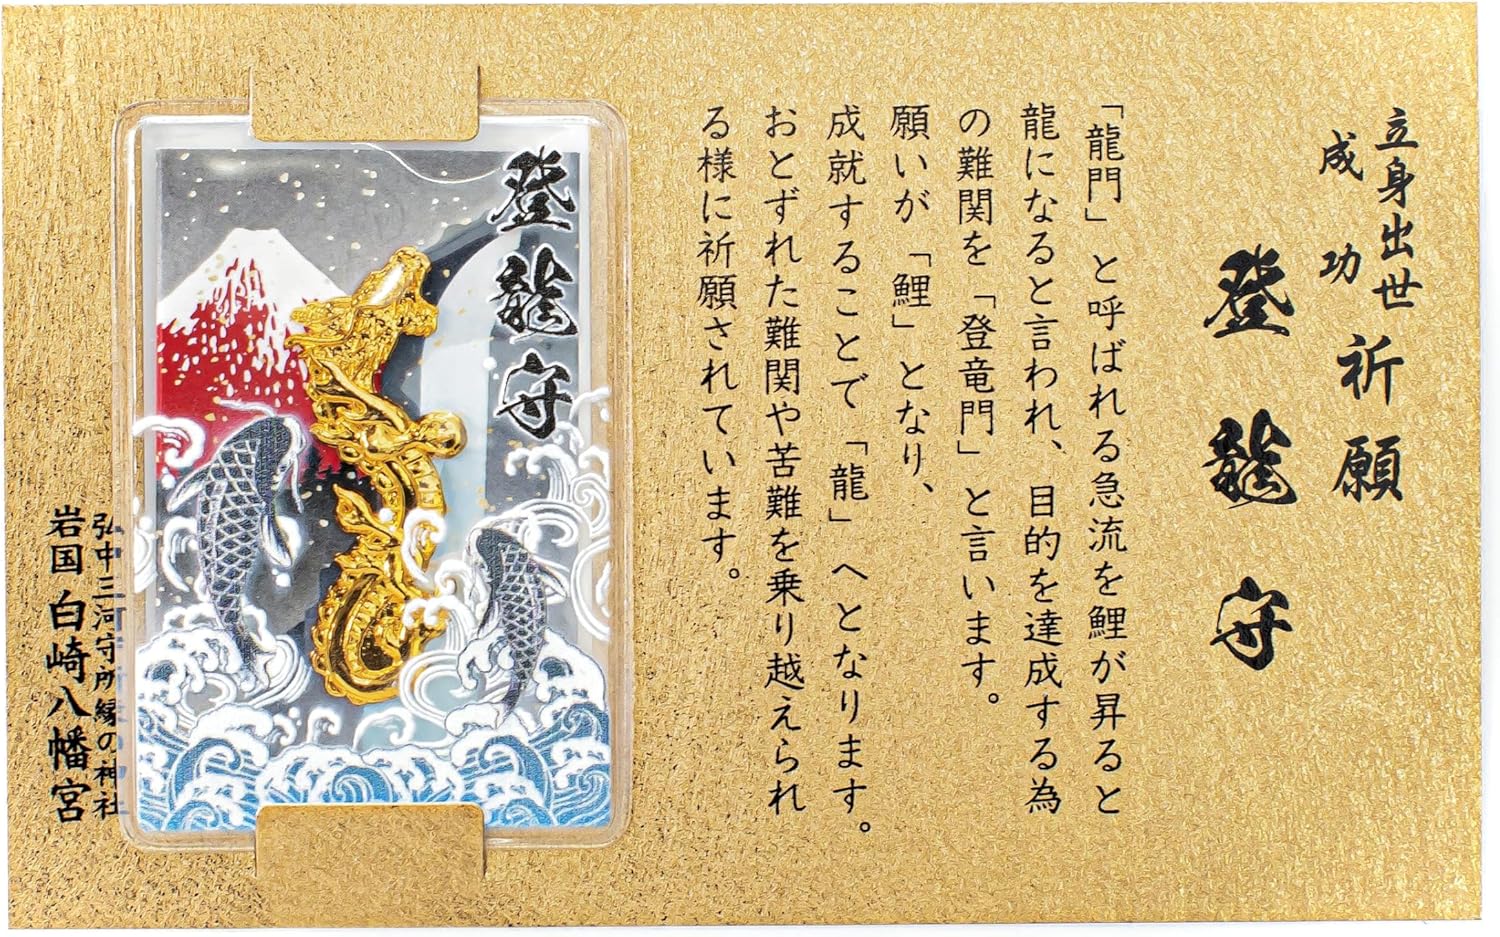 立身出世
成功
祈願
登龍守
「龍門」と呼ばれる急流を鯉が昇ると
龍になると言われ、目的を達成する為
の難関を「登竜門」と言います。
願いが「鯉」となり、
成就することで「龍」へとなります。
おとずれた難関や苦難を乗り越えられ
る様に祈願されています。
登龍守
弘中三河守所縁の神社
岩国 白崎八幡宮